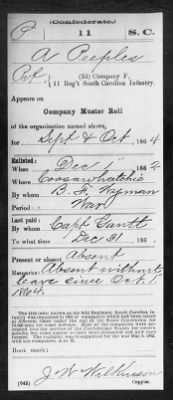 (Confederate.)
P 11 S. C.
A Peeples
Pvt, (2d) Company F,
11 Reg't South Carolina Infantry.
Appears on
Company Muster Roll
of the organization named above,
for Sept & Oct, 1864
Enlisted:
When Dec 1, 1862
Where Coosawhatchie
By whom B. F. Wyman
Period War
Last paid:
By whom Capt Gantt
To what time Dec 31, 186
Present or absent Absent
Remarks: Absent without
leave since Oct. 1"
1864.
Book mark:
J. W. Wilkinson
(642) Copyist.